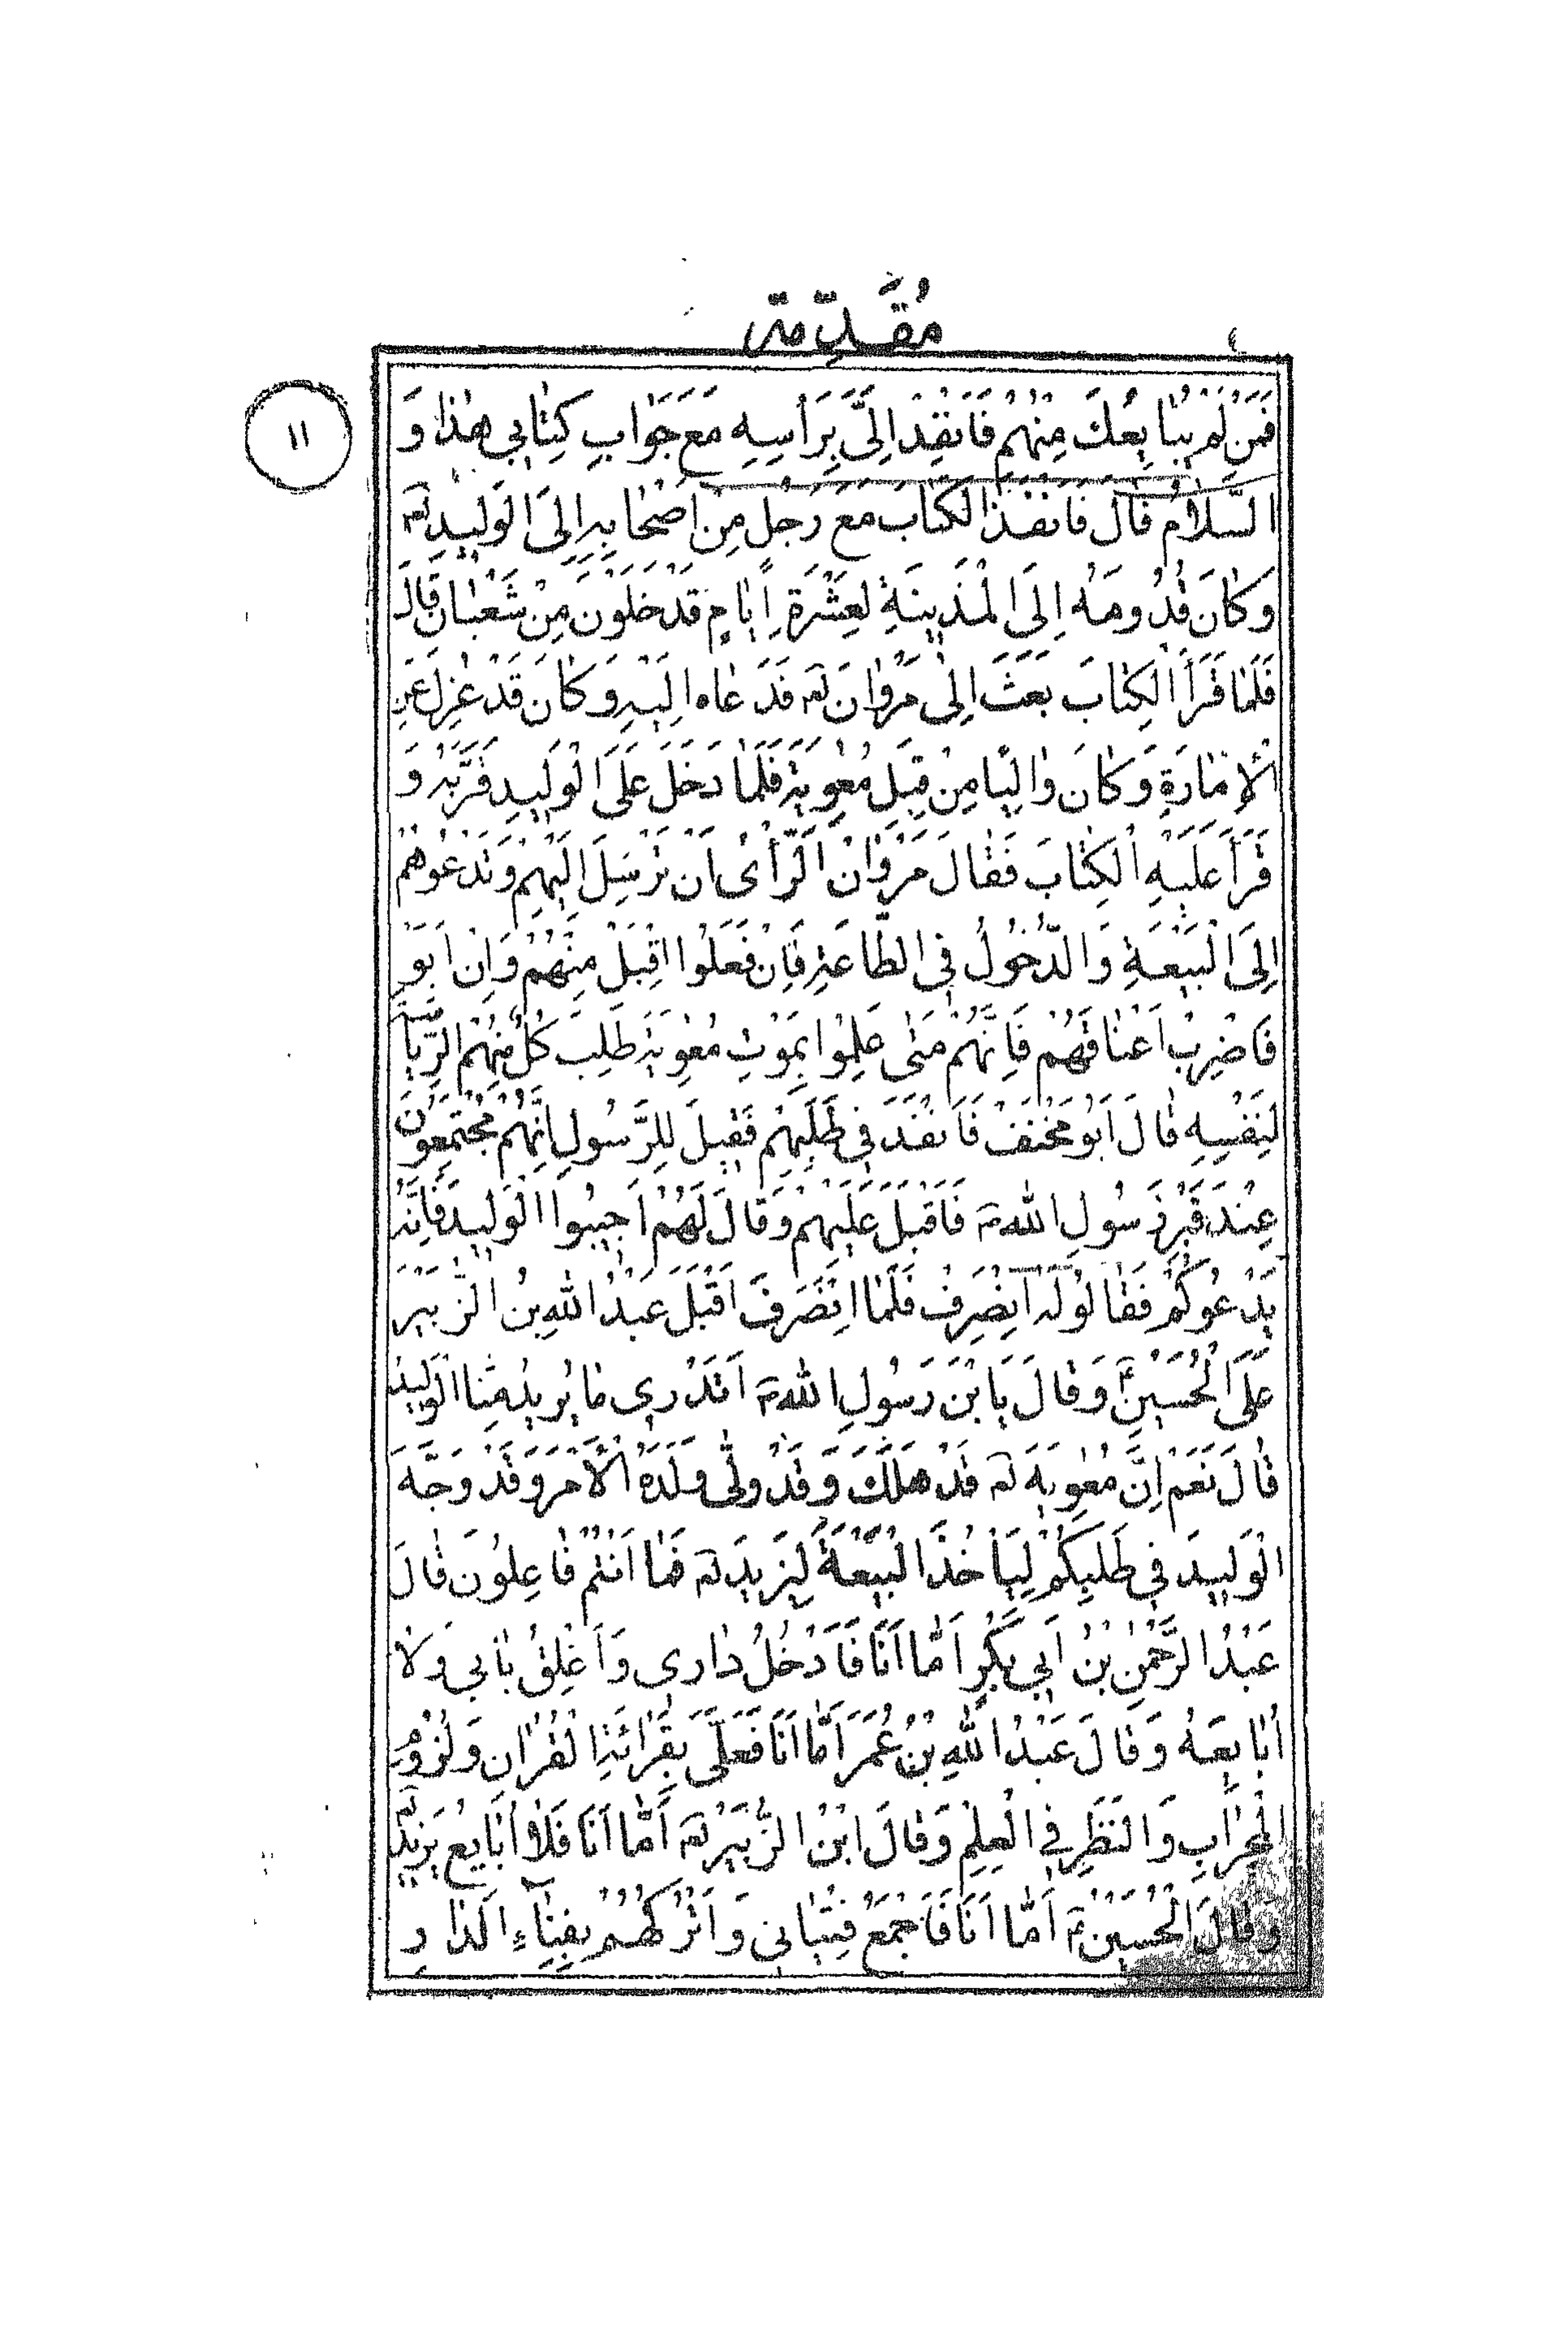 مُقَدِّمَة
٤
١١
فَمَنْ لَمْ يُبَايِعْكَ مِنْهُمْ فَاَنْفِذْ اِلَيَّ بِرَأْسِهِ مَعَ جَوَابِ كِتَابِي هٰذَا وَ
السَّلَامُ قَالَ فَاَنْفَذَ الْكِتَابَ مَعَ رَجُلٍ مِنْ اَصْحَابِهِ اِلَى الْوَلِيدِ لعه
وَكَانَ قُدُومُهُ اِلَى الْمَدِينَةِ لِعَشْرَةِ اَيَّامٍ قَدْ خَلَوْنَ مِنْ شَعْبَانَ قَالَ
فَلَمَّا قَرَأَ الْكِتَابَ بَعَثَ اِلَى مَرْوَانَ لعه فَدَعَاهُ اِلَيْهِ وَكَانَ قَدْ عُزِلَ عَنِ
الْاِمَارَةِ وَكَانَ وَالِيًا مِنْ قِبَلِ مُعٰوِيَةَ فَلَمَّا دَخَلَ عَلَى الْوَلِيدِ قَرَّبَهُ وَ
قَرَأَ عَلَيْهِ الْكِتَابَ فَقَالَ مَرْوَانُ اَلرَّأْىُ اَنْ تُرْسِلَ اِلَيْهِمْ وَتَدْعُوهُمْ
اِلَى الْبَيْعَةِ وَالدُّخُولُ فِي الطَّاعَةِ فَاِنْ فَعَلُوا اقْبَلْ مِنْهُمْ وَاِنْ اَبَوْ
فَاضْرِبْ اَعْنَاقَهُمْ فَاِنَّهُمْ مَتٰى عَلِمُوا بِمَوْتِ مُعٰوِيَةَ طَلِبَ كُلٌّ مِنْهُمُ الرِّيَاسَةَ
لِنَفْسِهِ قَالَ اَبُو مَخْنَفْ فَاَنْفَذَ فِي طَلَبِهِمْ فَقِيلَ لِلرَّسُولِ اِنَّهُمْ مُجْتَمِعُونَ
عِنْدَ قَبْرِ رَسُولِ اللهِ ص فَاَقْبَلَ عَلَيْهِمْ وَقَالَ لَهُمْ اَجِيبُوا الْوَلِيدَ فَاِنَّهُ
يَدْعُوكُمْ فَقَالُو لَهُ اِنْصَرِفْ فَلَمَّا انْصَرَفَ اَقْبَلَ عَبْدُ اللهِ بْنُ الزُّبَيْرِ
عَلَى الْحُسَيْنِ ع وَقَالَ يَا بْنَ رَسُولِ اللهِ ص اَتَدْرِي مَا يُرِيدُ مِنَّا الْوَلِيدُ
قَالَ نَعَمْ اِنَّ مُعٰوِيَةَ لعه قَدْ هَلَكَ وَقَدْ وَلّٰى وَلَدَهُ الْاَمْرَ وَقَدْ وَجَّهَ
الْوَلِيدَ فِي طَلَبِكُمْ لِيَاْخُذَ الْبَيْعَةَ لِيَزِيدَ لعه فَمَا اَنْتُمْ فَاعِلُونَ قَالَ
عَبْدُ الرَّحْمٰنِ بْنُ اَبِي بَكْرٍ اَمَّا اَنَا فَاَدْخُلُ دَارِي وَاَغْلِقُ بَابِي وَلَا
اُبَايِعَهُ وَقَالَ عَبْدُ اللهِ بْنُ عُمَرَ اَمَّا اَنَا فَعَلَيَّ بِقَرَائَةِ الْقُرْاٰنِ وَلُزُومِ
الْمِحْرَابِ وَالنَّظَرِ فِي الْعِلْمِ وَقَالَ ابْنُ الزُّبَيْرِ لعه اَمَّا اَنَا فَلَا اُبَايِعُ يَزِيدَ لعه
وَقَالَ الْحُسَيْنُ ع اَمَّا اَنَا فَاَجْمَعُ فِتْيَانِي وَاَتْرُكُهُمْ بِفِنَاءِ الدَّارِ